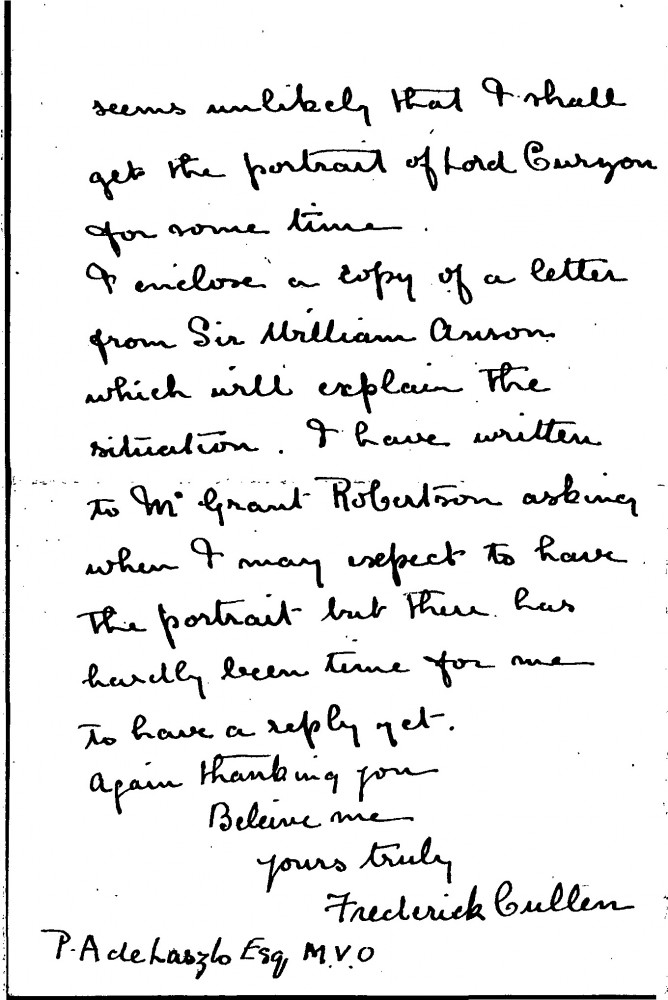 seems unlikely that I shall
get the portrait of Lord Curzon
for some time.
I enclose a copy of a letter
from Sir William Anson
which will explain the
situation. I have written
to Mr Grant Robertson asking
when I may expect to have
the portrait but there has
hardly been time for me
to have a reply yet.
Again thanking you
Beleive me
yours truly
Frederick Cullen
P. A de Laszlo Esq M.V.O